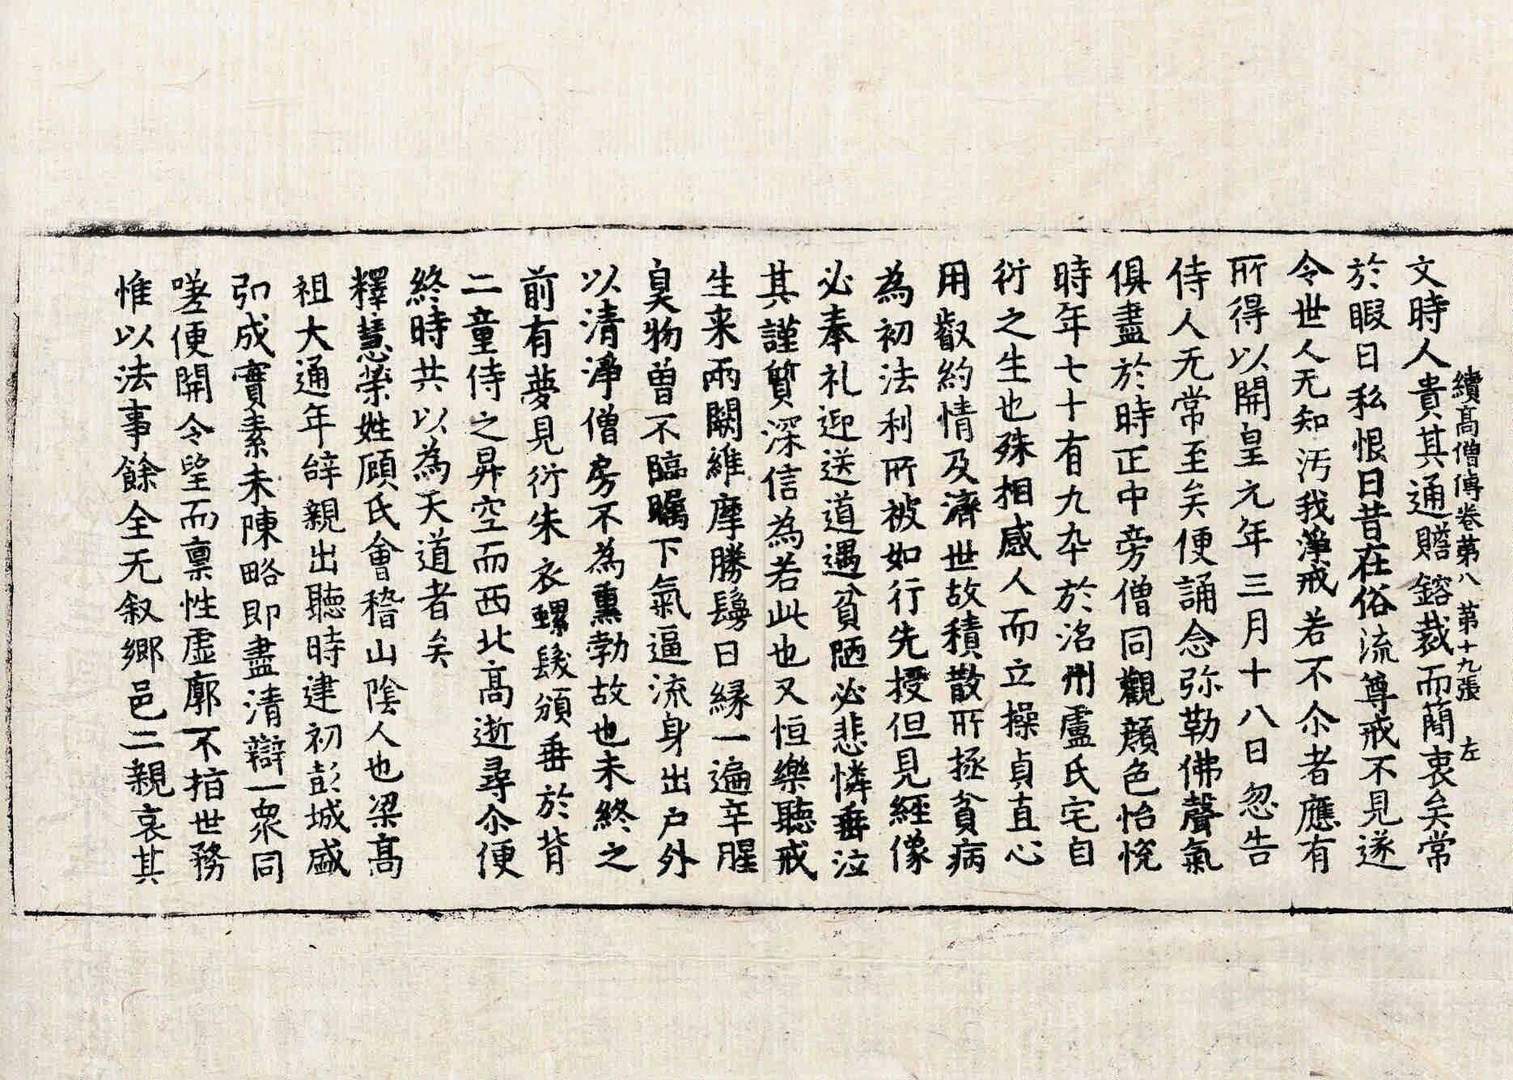 續髙僧傳卷第八 第十九張 左
文時人貴其通贍鎔裁而簡衷矣常
於暇日私恨曰昔在俗流尊戒不見遂
令世人无知汚我淨戒若不尒者應有
所得以開皇元年三月十八日忽告
侍人无常至矣便誦念弥勒佛聲氣
俱盡於時正中旁僧同觀顔色怡悅
時年七十有九卒於洺州盧氏宅自
衍之生也殊相感人而立操貞直心
用叡約情及濟世故積散所拯貧病
為初法利所被如行先授但見經像
必奉礼迎送道遇貧陋必悲憐垂泣
其謹質深信為若此也又恒樂聽戒
生来兩闕維摩勝鬘日緣一遍辛腥
臭物曽不臨矚下氣逼流身出户外
以清淨僧房不為熏勃故也未終之
前有夢見衍朱衣螺髮頒垂於背
二童侍之昇空而西北髙逝尋尒便
終時共以為天道者矣
釋慧榮姓顧氏會稽山陰人也梁髙
祖大通年辝親出聽時建初彭城盛
弘成實素未陳略即盡清辯一衆同
嗟便開令望而稟性虛廓不指世務
惟以法事餘全无叙鄉邑二親哀其